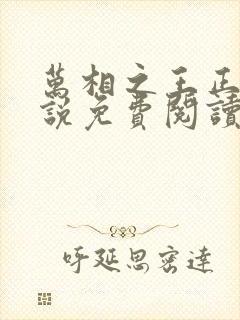 萬相之王正
說免費閱讀
呼延思密達